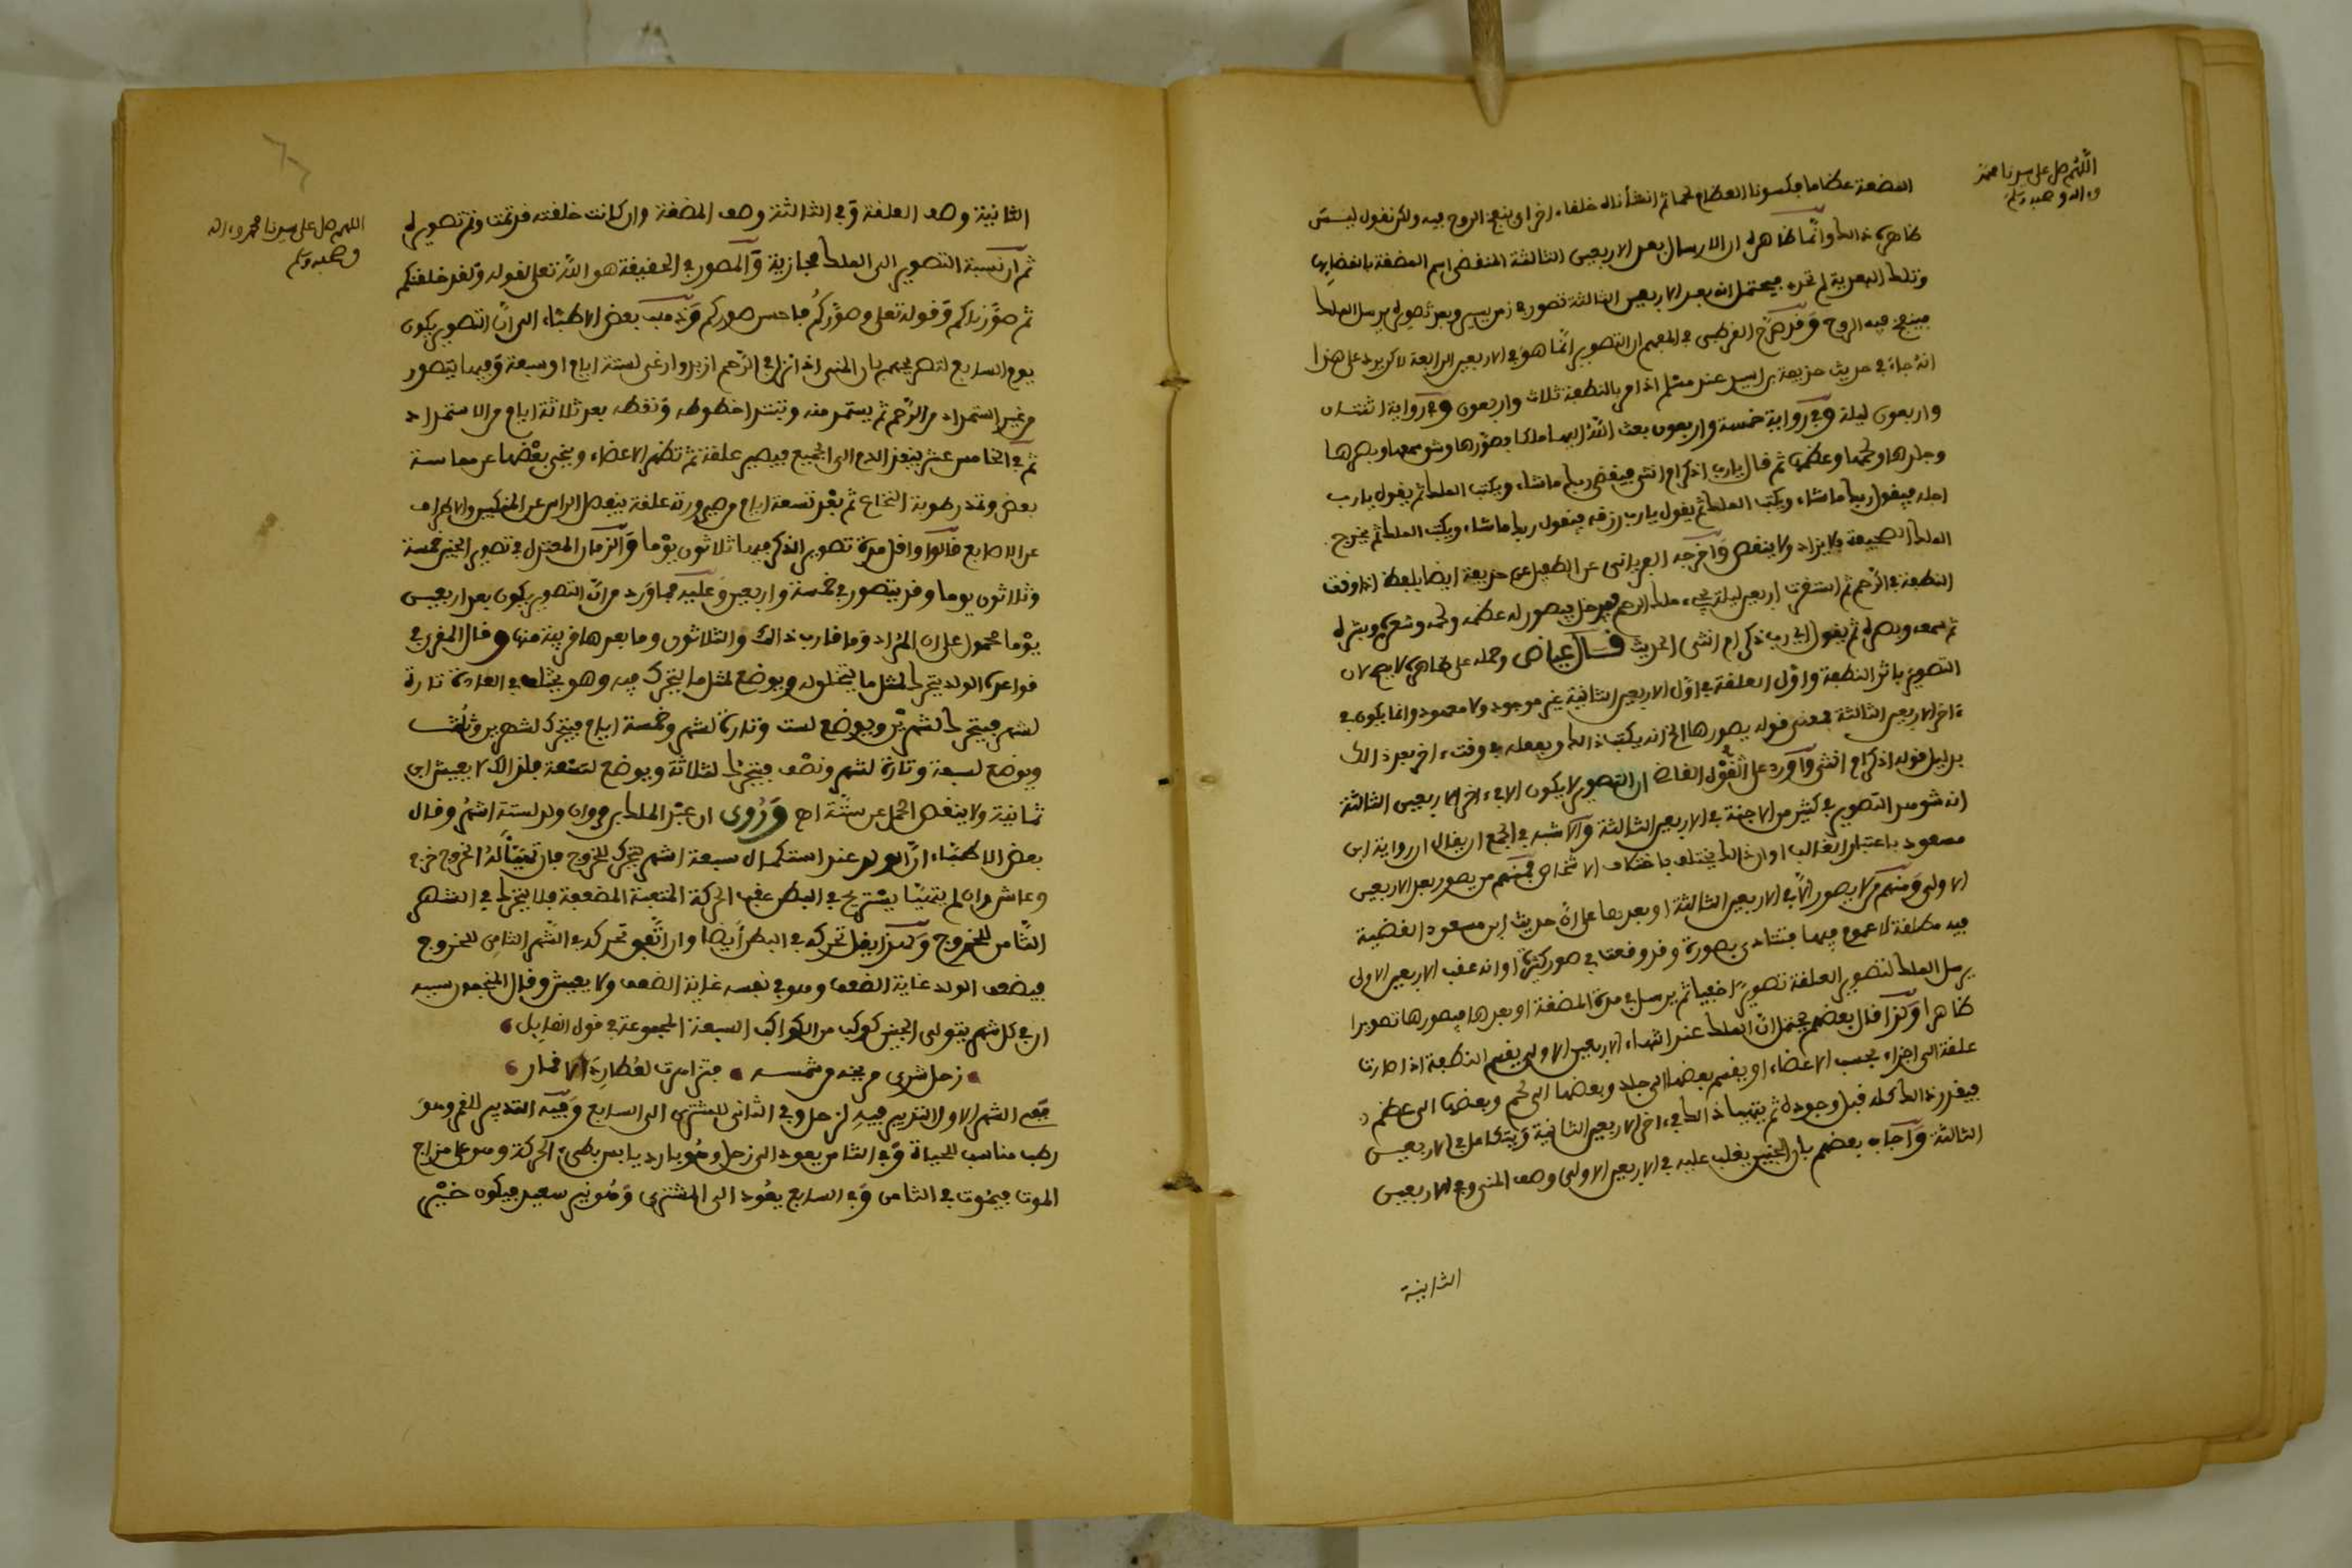 اللهم صل على سيدنا محمد
وءاله وصحبه وسلم
المضغة عظاما فكسونا العظام لحما ثم انشأناه خلقا ءاخر اي بنفخ الروح فيه ولكن نقول ليس
ظاهره ذالك وانما ظاهره ان الارسال بعد الاربعين الثالثة المنقضى اسم المضغة بانقضايها
وتلك البعدية لم تحد فيحتمل انه بعد الاربعين الثالثة تصور في زمن يسير وبعد تصويره يرسل الملك
فينفخ فيه الروح وقد صرح القرطبى في المفهم ان التصوير انما هو في الاربعين الرابعة لاكن يرد على هذا
انه جاء في حديث حذيفة بن اسيد عند مسلم اذا مر بالنطفة ثلاث واربعون وفي رواية اثنتان
واربعون ليلة وفي رواية خمسة واربعون بعث الله اليها ملكا فصورها وشق سمعها وبصرها
وجلدها ولحمها وعظمها ثم قال يارب اذكر ام انثى فيقضى ربك ما شاء ويكتب الملك ثم يقول يارب
اجله فيقول ربك ما شاء ويكتب الملك ثم يقول يارب رزقه فيقول ربك ما شاء ويكتب الملك ثم يخرج
الملك الصحيفة فلا يزاد ولا ينقص واخرجه الفريابى عن الطفيل عن حذيفة ايضا بلفظ اذا وقعت
النطفة في الرحم ثم استقرت اربعين ليلة يجيء ملك الرحم فيدخل فيصور له عظمه ولحمه وشعره وبشره
ثم سمعه وبصره ثم يقول اي رب ذكر ام انثى الحديث قال عياض وحمله على ظاهره لا يصح لان
التصوير باثر النطفة واول العلقة في اول الاربعين الثانية غير موجود ولا معهود وانما يكون في
ءاخر الاربعين الثالثة فمعنى قوله يصورها الخ انه يكتب ذالك ويفعله في وقت ءاخر بعد ذالك
بدليل قوله اذكر ام انثى واورد على القول القاضى ان التصوير لا يكون الا في ءاخر الاربعين الثالثة
انه شوهد التصوير في كثير من الاجنة في الاربعين الثالثة والاشبه في الجمع ان يقال ان رواية ابن
مسعود باعتبار الغالب او ان ذالك يختلف باختلاف الاشخاص فمنهم من يصور بعد الاربعين
الاولى ومنهم من لا يصور الا في الاربعين الثالثة او بعدها على ان حديث ابن مسعود القضية
فيه مطلقة لا عموم فيها فتتادى بصورة وقد وقعت في صور كثيرة او انه عقب الاربعين الاولى
يرسل الملك لتصوير العلقة تصويرا خفيا ثم يرسل في مدة المضغة او بعدها فيصورها تصويرا
ظاهرا وكذا قال بعضهم يحتمل ان الملك عند انتهاء الاربعين الاولى يقسم النطفة اذا صارت
علقة الى اجزاء بحسب الاعضاء او يقسم بعضها الى جلد وبعضها الى لحم وبعضها الى عظم
فيقدر ذالك كله قبل وجوده ثم يتهيا ذالك في ءاخر الاربعين الثانية ويتكامل في الاربعين
الثالثة واجاب بعضهم بان الجنين يغلب عليه في الاربعين الاولى وصف المنى وفي الاربعين
الثانية
اللهم صل على سيدنا محمد وءاله
وصحبه وسلم
الثانية وصف العلقة وفي الثالثة وصف المضغة وان كانت خلقته قد تمت وتم تصويره
ثم ان نسبة التصوير الى الملك مجازية والمصور في الحقيقة هو الله تعلى لقوله ولقد خلقنكم
ثم صورناكم وقوله تعلى وصوركم فاحسن صوركم وذهب بعض الاطباء الى ان التصوير يكون
يوم السابع لتصريحهم بان المنى اذا نزل في الرحم ازبد وارغى لستة ايام او سبعة وفيها يتصور
من غير استمداد من الرحم ثم يستمد منه وتبتدا خطوطه ونقطه بعد ثلاثة ايام من الاستمداد
ثم في الخامس عشر ينفذ الدم الى الجميع فيصير علقة ثم تظهر الاعضاء وينحى بعضها عن مماسة
بعض وتمتد رطوبة النخاع ثم بعد تسعة ايام من صيرورته علقة ينفصل الراس عن المنكبين والاطراف
عن الاصابع قالوا واقل مدة تصوير الذكر فيها ثلاثون يوما والزمان المعتدل في تصوير الجنين خمسة
وثلاثون يوما وقد يتصور في خمسة واربعين وعليه فما ورد من ان التصوير يكون بعد اربعين
يوما محمول على ان المراد وما قارب ذالك والثلاثون وما بعدها قريبة منها وقال المقرى في
قواعده الولد يتحرك لمثل ما يتخلق له ويوضع لمثل ما يتحرك فيه وهو يختلف في العادة تارة
لشهر فيتحرك لشهرين ويوضع لست وتارة لشهر وخمسة ايام فيتحرك لشهرين وثلث
ويوضع لسبعة وتارة لشهر ونصف فيتحرك لثلاثة ويوضع لتسعة فلذالك لا يعيش ابن
ثمانية ولا ينقص الحمل عن ستة اه وروى ان عبد الملك بن مروان ولد لستة اشهر وقال
بعض الاطباء ان الولد عند استكمال سبعة اشهر يتحرك للخروج فان تهيأ له الخروج خرج
وعاش وان لم يتهيا يستريح في البطن عقب الحركة المتعبة المضعفة فلا يتحرك في الشهر
الثامن للخروج وكذا يقل تحركه في البطن ايضا وان اتفق تحركه في الشهر الثامن للخروج
فيضعف الولد غاية الضعف وهو في نفسه غاية الضعف ولا يعيش وقال المنجمون سببه
ان في كل شهر يتولى الجنين كوكب من الكواكب السبعة المجموعة في قول القايل
زحل شرى مريخه من شمسه فتزاهرت لعطارد الاقمار
ففي الشهر الاول التدبير فيه لزحل وفي الثانى للمشترى الى السابع وفيه التدبير للقمر وهو
رطب مناسب للحياة وفي الثامن يعود الى زحل وهو بارد يابس بطيء الحركة وهو على مزاج
الموت فيموت في الثامن وفي التاسع يعود الى المشترى وهو نير سعيد فيكون خير